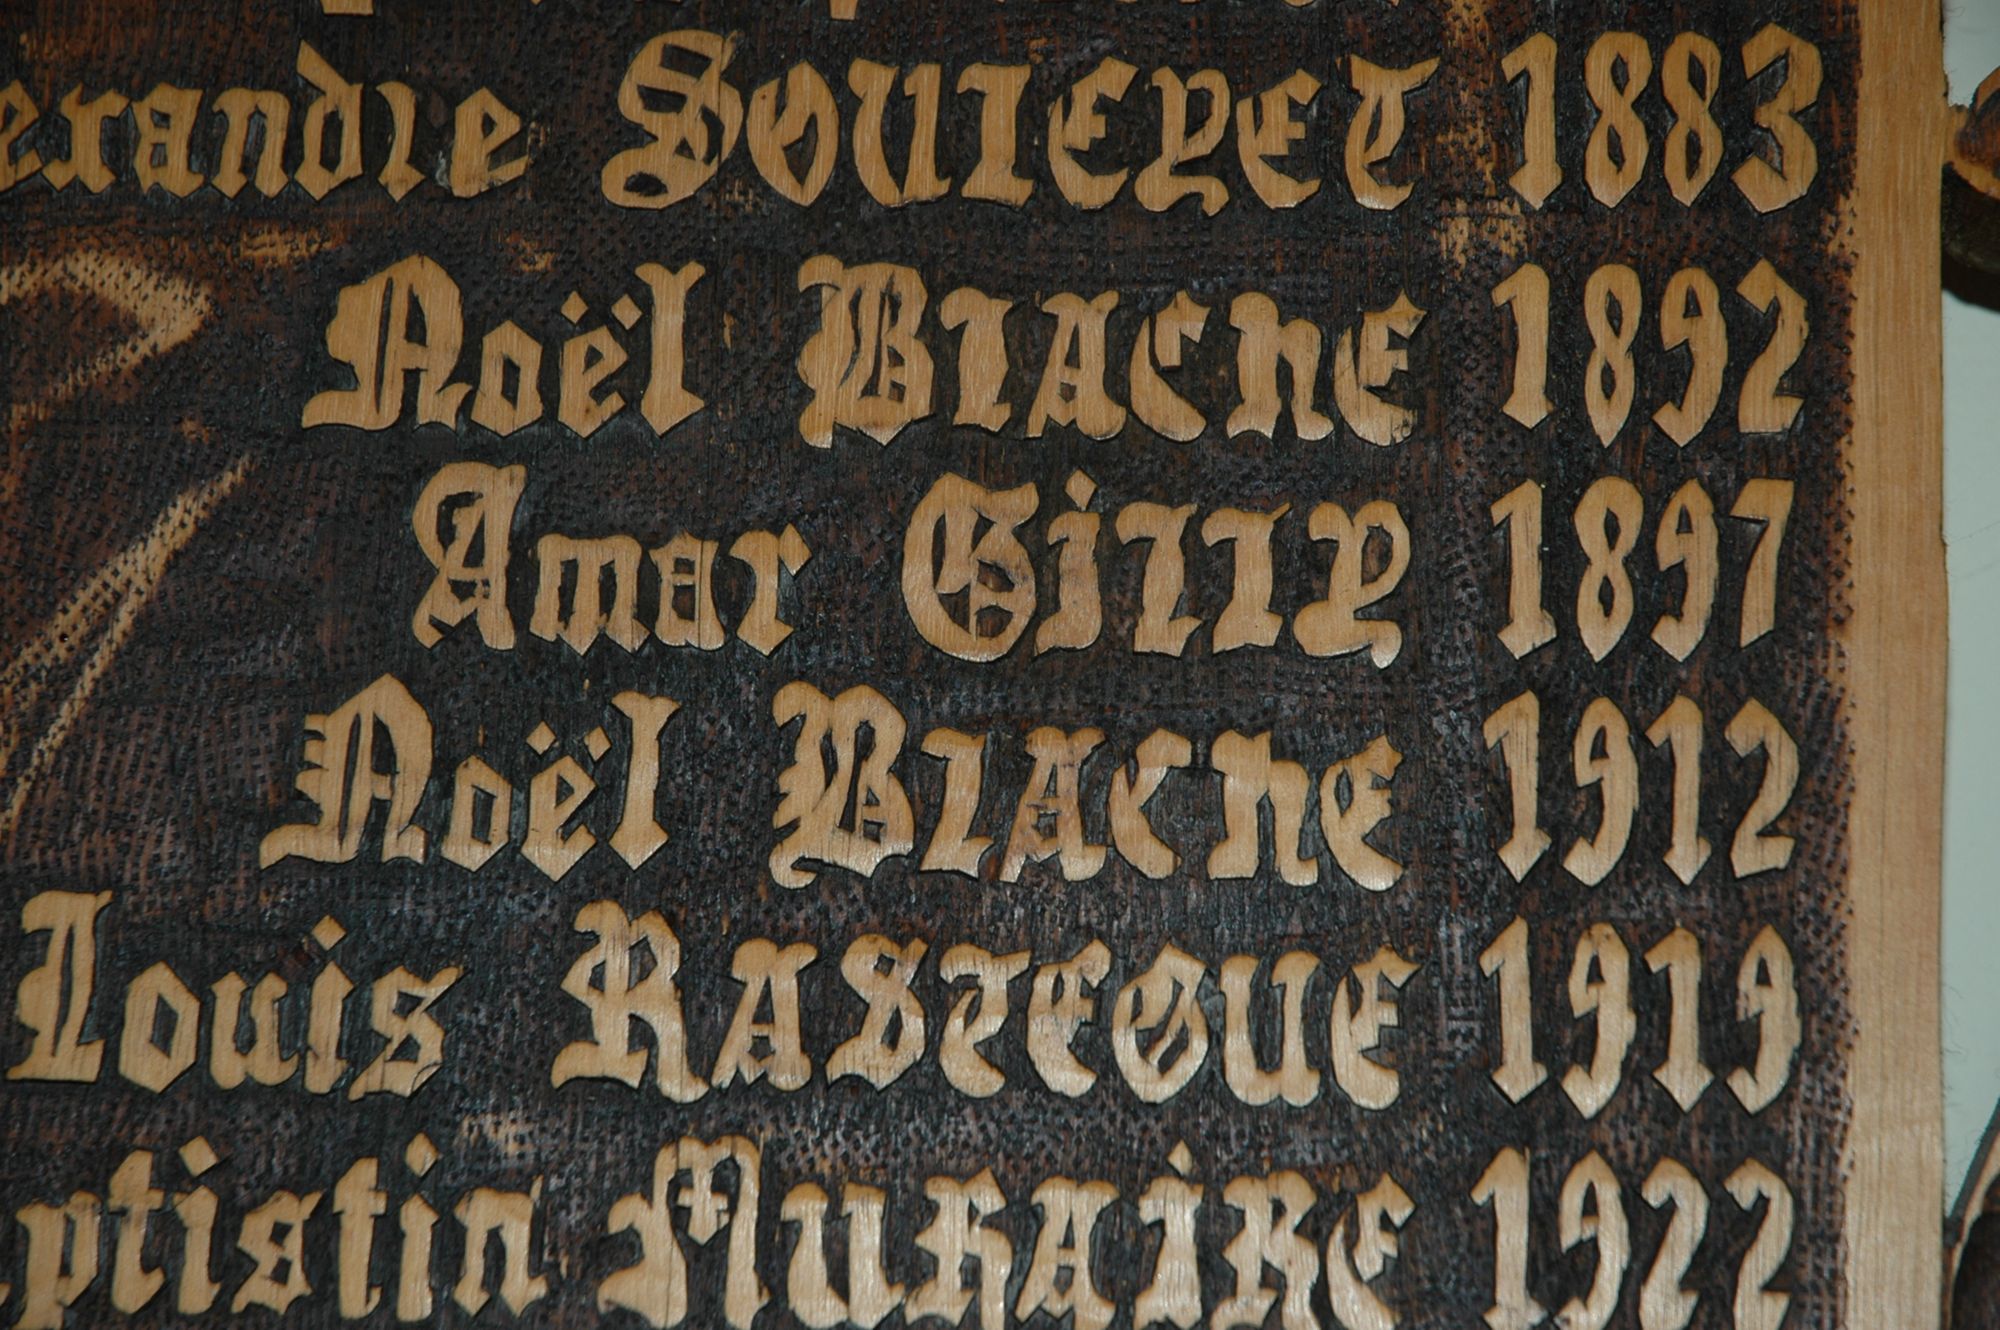 erandie Souleyet 1883
Noël Blache 1892
Amar Gilly 1897
Noël Blache 1912
Louis Rasteque 1919
ptistin Muraire 1922